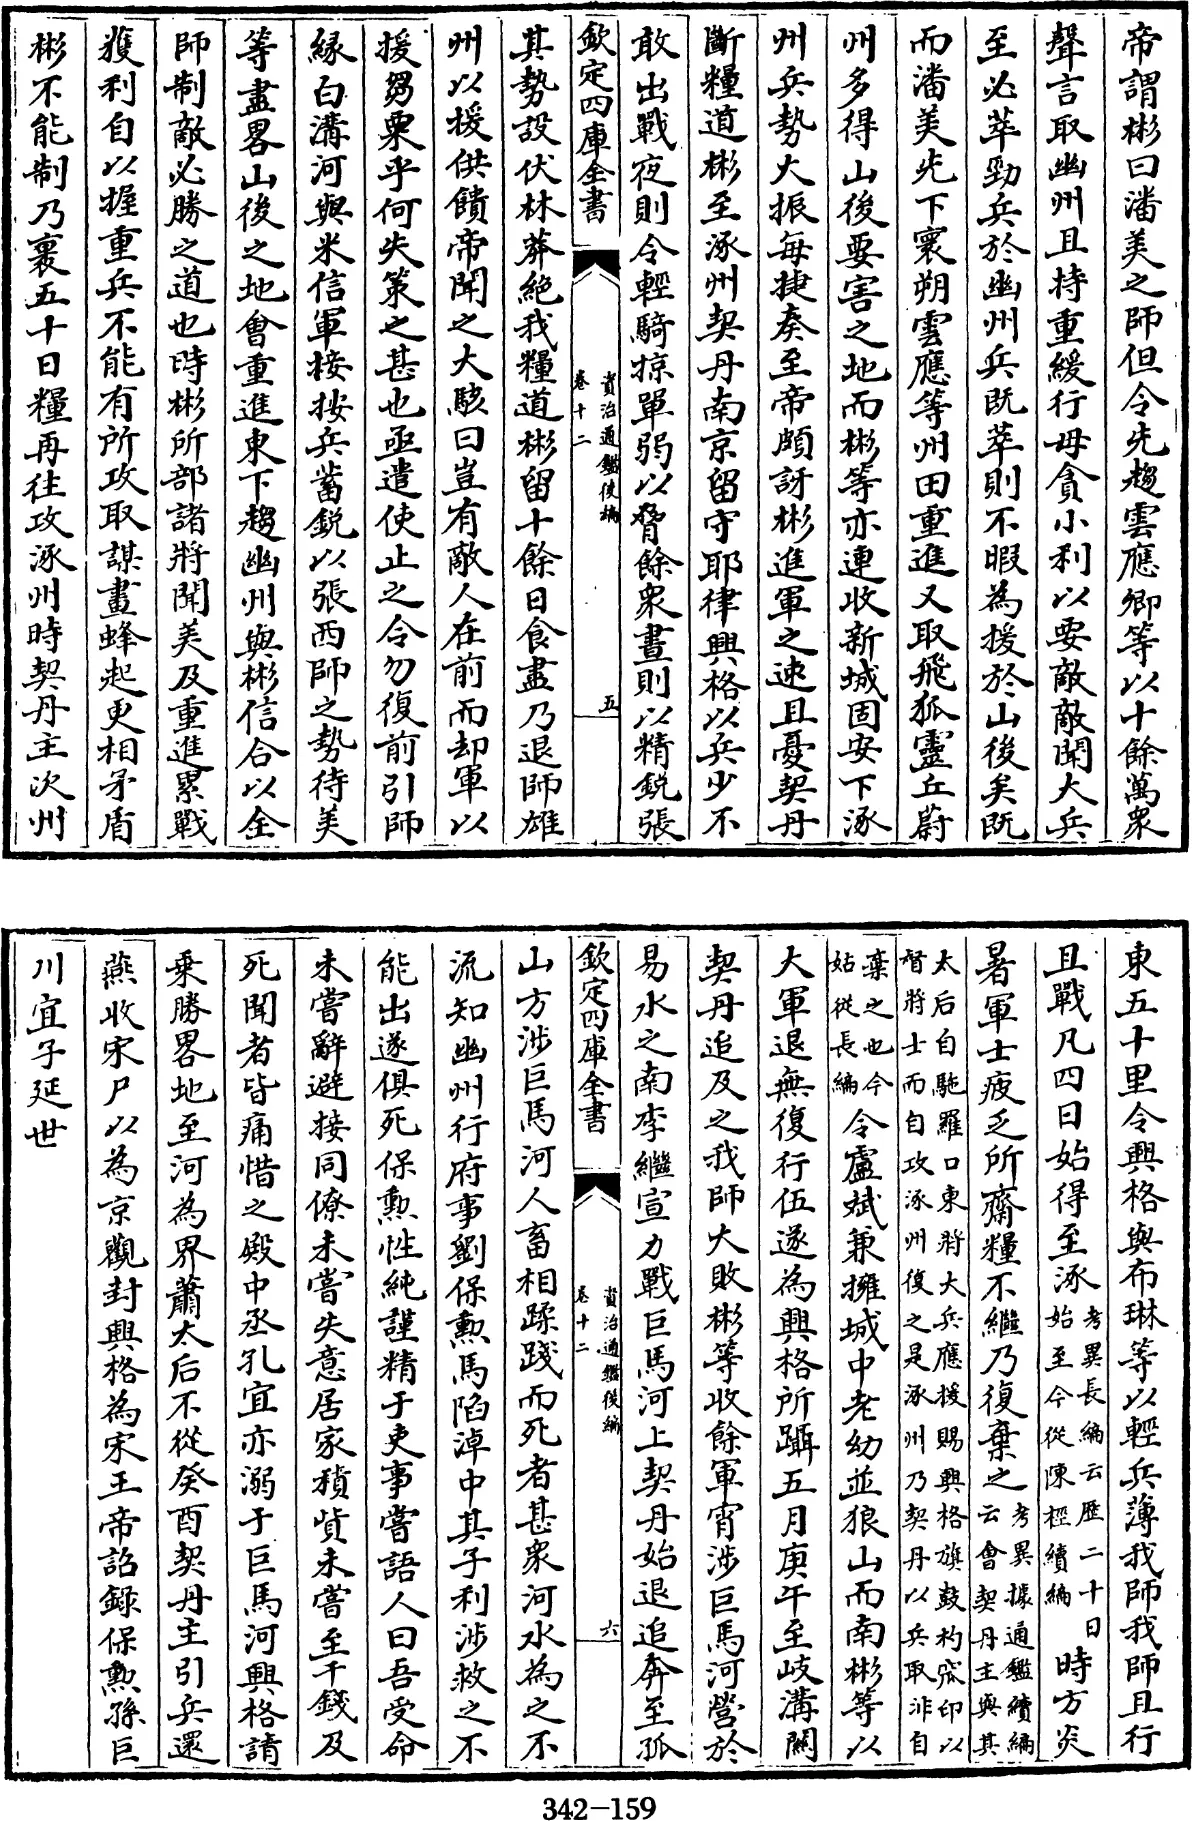 帝謂彬曰潘美之師但令先趨雲應卿等以十餘萬衆
聲言取幽州且持重緩行毋貪小利以要敵敵聞大兵
至必萃勁兵於幽州兵既萃則不暇為援於山後矣既
而潘美先下寰朔雲應等州田重進又取飛狐靈丘蔚
州多得山後要害之地而彬等亦連收新城固安下涿
州兵勢大振每捷奏至帝頗訝彬進軍之速且憂契丹
斷糧道彬至涿州契丹南京留守耶律興格以兵少不
敢出戰夜則令輕騎掠單弱以脅餘衆晝則以精銳張
欽定四庫全書
資治通鑑後編
卷十二
五
其勢設伏林莽絶我糧道彬留十餘日食盡乃退師雄
州以援供饋帝聞之大駭曰豈有敵人在前而却軍以
援芻粟乎何失策之甚也亟遣使止之令勿復前引師
緣白溝河與米信軍接按兵蓄銳以張西師之勢待美
等盡畧山後之地會重進東下趨幽州與彬信合以全
師制敵必勝之道也時彬所部諸將聞美及重進累戰
獲利自以握重兵不能有所攻取謀畫蜂起更相矛盾
彬不能制乃裹五十日糧再往攻涿州時契丹主次州
東五十里令興格與布琳等以輕兵薄我師我師且行
且戰凡四日始得至涿考異長編云歷二十日始至今從陳桱續編時方炎
暑軍士疲乏所齎糧不繼乃復棄之考異據通鑑續編云會契丹主與其
太后自駞羅口東將大兵應援賜興格旗鼓杓窊印以督將士而自攻涿州復之是涿州乃契丹以兵取非自
棄之也今姑從長編令盧斌兼擁城中老幼並狼山而南彬等以
大軍退無復行伍遂為興格所躡五月庚午至岐溝關
契丹追及之我師大敗彬等收餘軍宵涉巨馬河營於
易水之南李繼宣力戰巨馬河上契丹始退追奔至孤
欽定四庫全書
資治通鑑後編
卷十二
六
山方涉巨馬河人畜相蹂踐而死者甚衆河水為之不
流知幽州行府事劉保勲馬陷淖中其子利涉救之不
能出遂俱死保勲性純謹精于吏事嘗語人曰吾受命
未嘗辭避接同僚未嘗失意居家積貲未嘗至千錢及
死聞者皆痛惜之殿中丞孔宜亦溺于巨馬河興格請
乘勝畧地至河為界蕭太后不從癸酉契丹主引兵還
燕收宋尸以為京觀封興格為宋王帝詔録保勲孫巨
川宜子延世
342-159